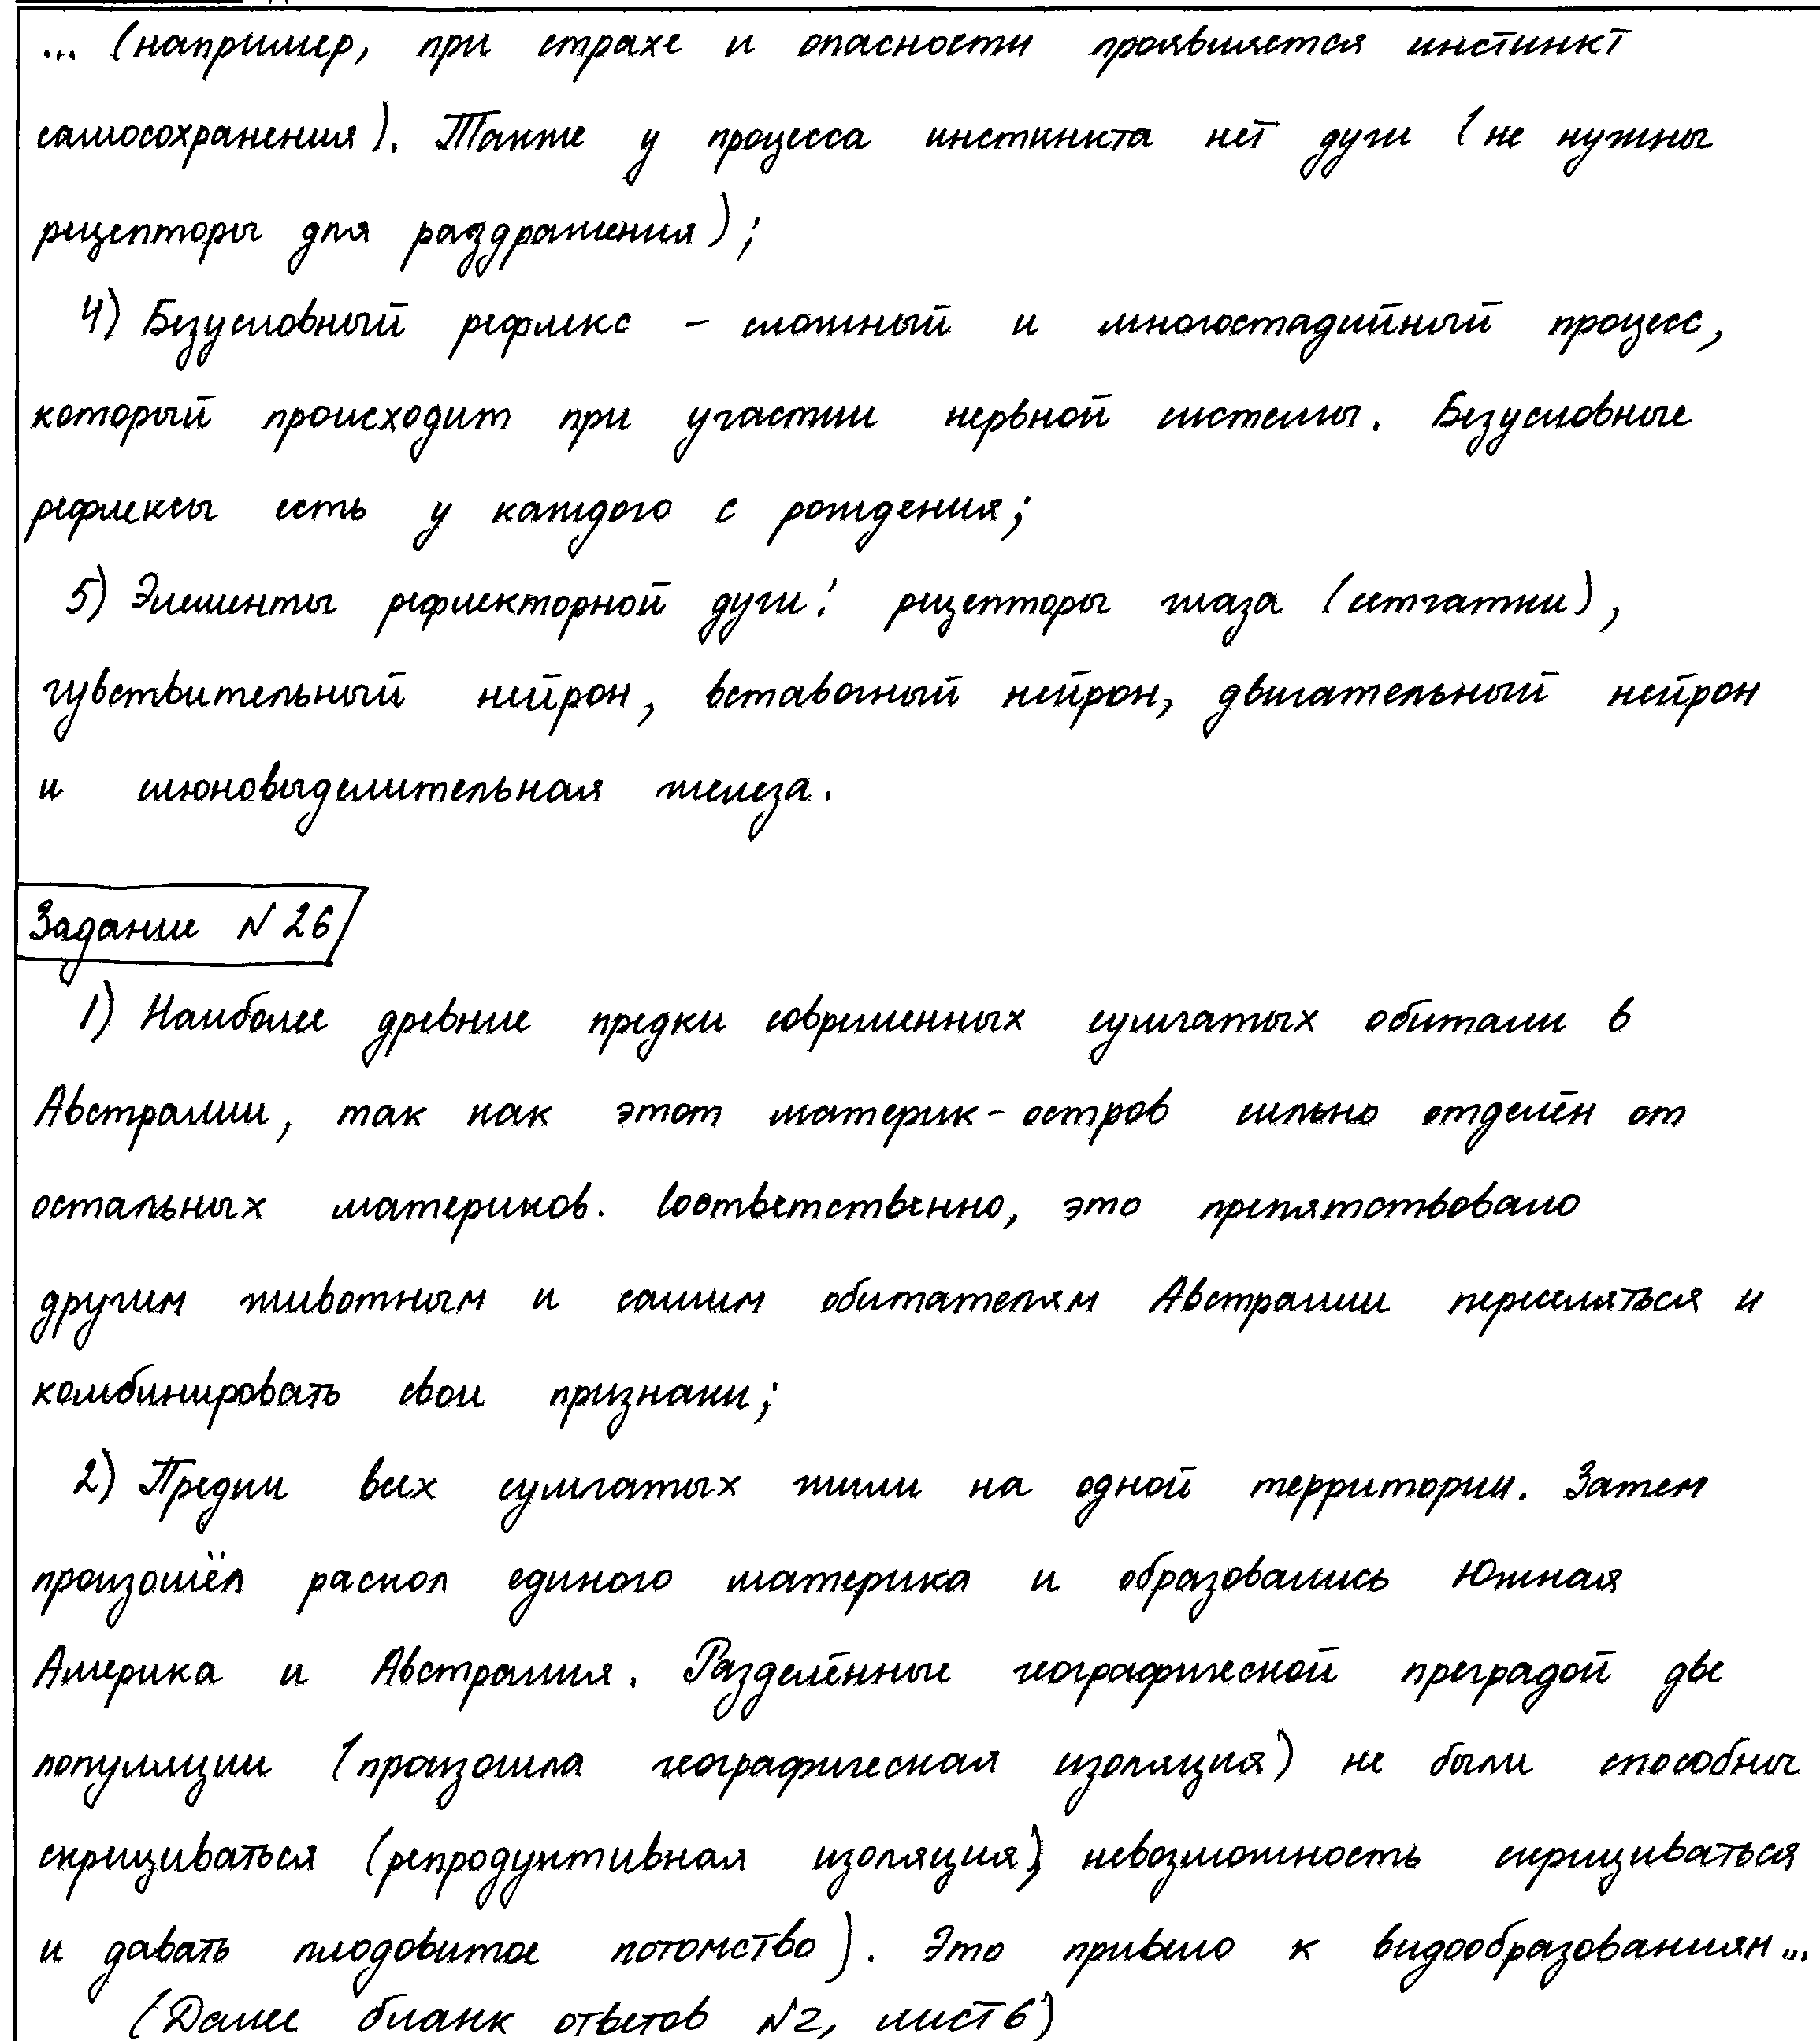 ... (например, при страхе и опасности проявляется инстинкт
самосохранения). Также у процесса инстинкта нет дуги (не нужны
рецепторы для раздражения);
4) Безусловный рефлекс - сложный и многостадийный процесс,
который происходит при участии нервной системы. Безусловные
рефлексы есть у каждого с рождения;
5) Элементы рефлекторной дуги: рецепторы глаза (сетчатки),
чувствительный нейрон, вставочный нейрон, двигательный нейрон
и слюновыделительная железа.
Задание №26
1) Наиболее древние предки современных сумчатых обитали в
Австралии, так как этот материк-остров сильно отделён от
остальных материков. Соответственно, это препятствовало
другим животным и самим обитателям Австралии переселяться и
комбинировать свои признаки;
2) Предки всех сумчатых жили на одной территории. Затем
произошёл раскол единого материка и образовались Южная
Америка и Австралия. Разделённые географической преградой две
популяции (произошла географическая изоляция) не были способны
скрещиваться (репродуктивная изоляция), невозможность скрещиваться
и давать плодовитое потомство). Это привело к видообразованиям...
(Далее бланк ответов №2, лист 6)